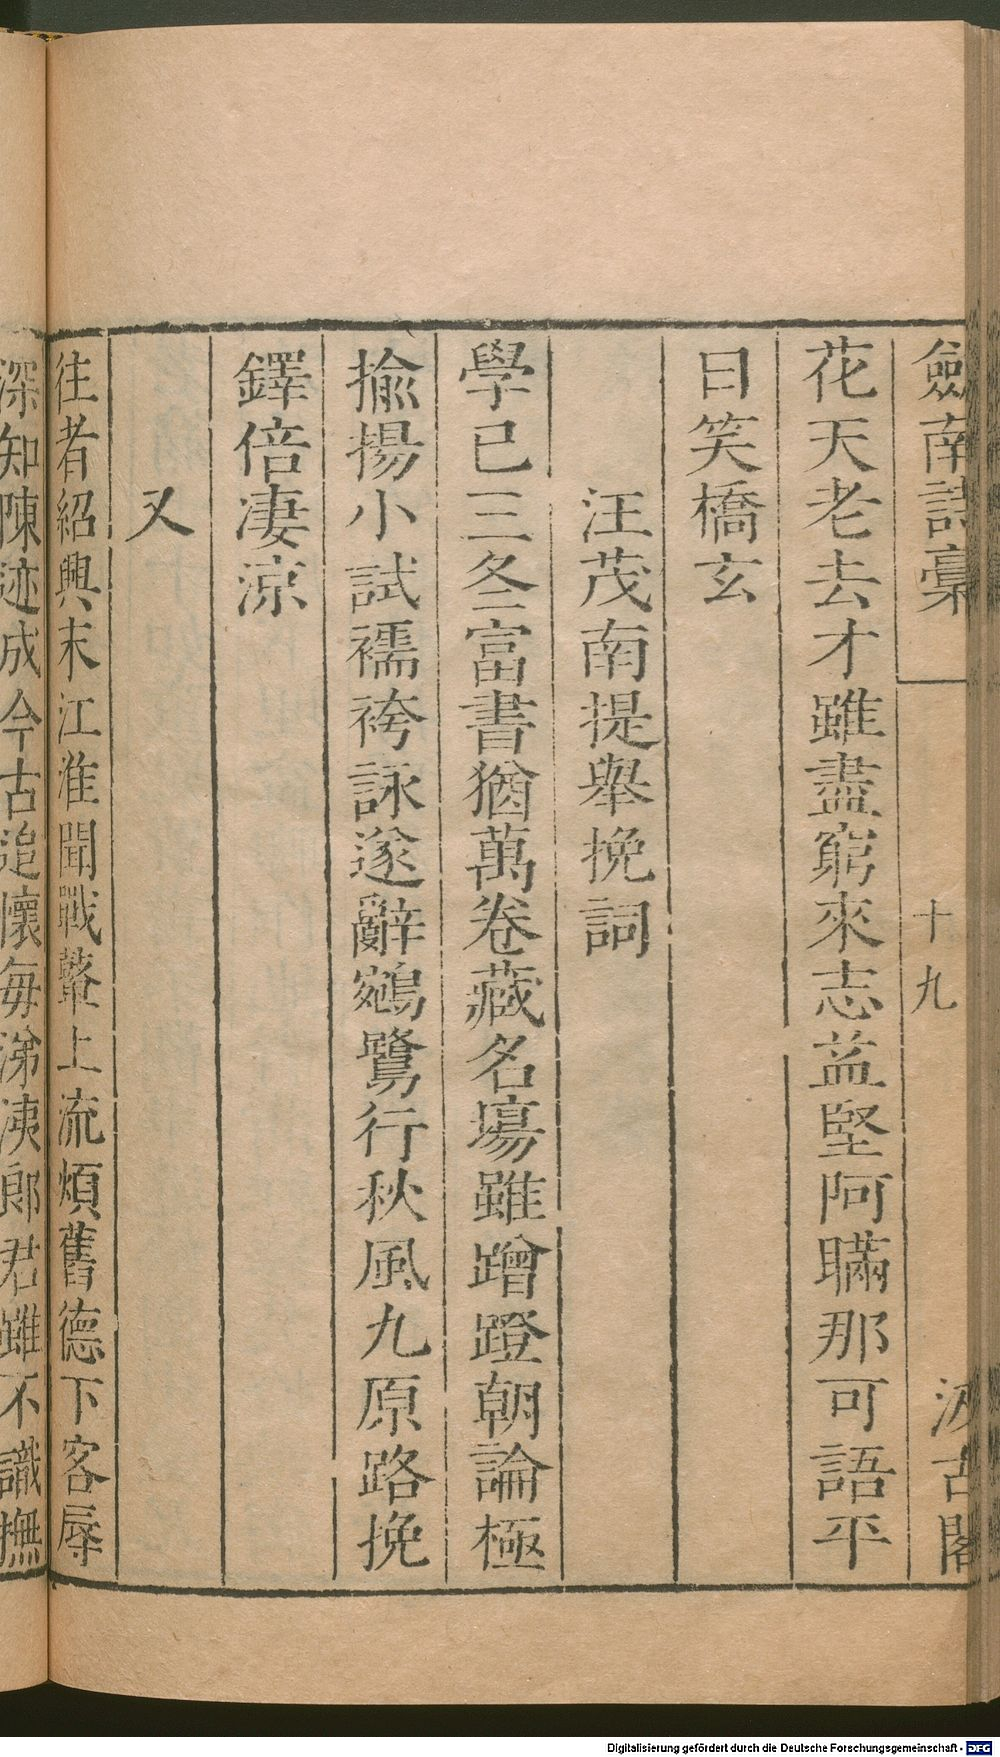 劍南詩稾
十九
汲古閣
花天老去才雖盡窮來志益堅阿瞞那可語平
日笑橋玄
汪茂南提舉挽詞
學已三冬富書猶萬卷藏名塲雖蹭蹬朝論極
揄揚小試襦袴詠遂辭鵷鷺行秋風九原路挽
鐸倍凄涼
又
往者紹興末江淮聞戰鼙上流煩舊德下客辱
深知陳迹成今古追懷每涕洟郎君雖不識撫
Digitalisierung gefördert durch die Deutsche Forschungsgemeinschaft - DFG